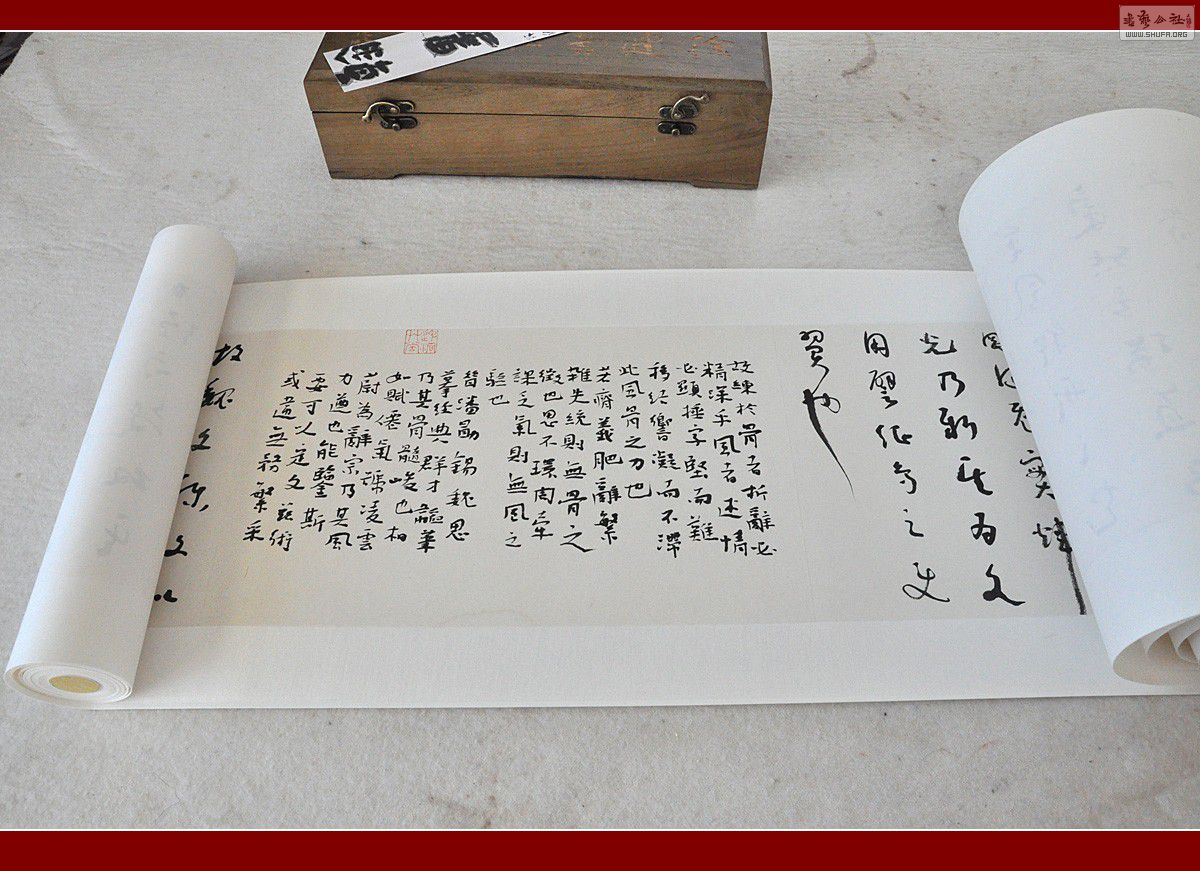 剛健既實輝
光乃新其為文
用譬征鳥之使
翼也
故練於骨者析辭必
精深乎風者述情
必顯捶字堅而難
移結響凝而不滯
此風骨之力也
若瘠義肥辭繁
雜失統則無骨之
徵也思不環周牽
課乏氣則無風之
驗也
昔潘勖錫魏思
摹經典群才韜筆
乃其骨髓峻也相
如賦僊氣號凌雲
蔚為辭宗乃其風
力遒也能鑒斯
要可以定文茲術
或違無務繁采
故魏文稱文以
書藝公社
WWW.SHUFA.ORG